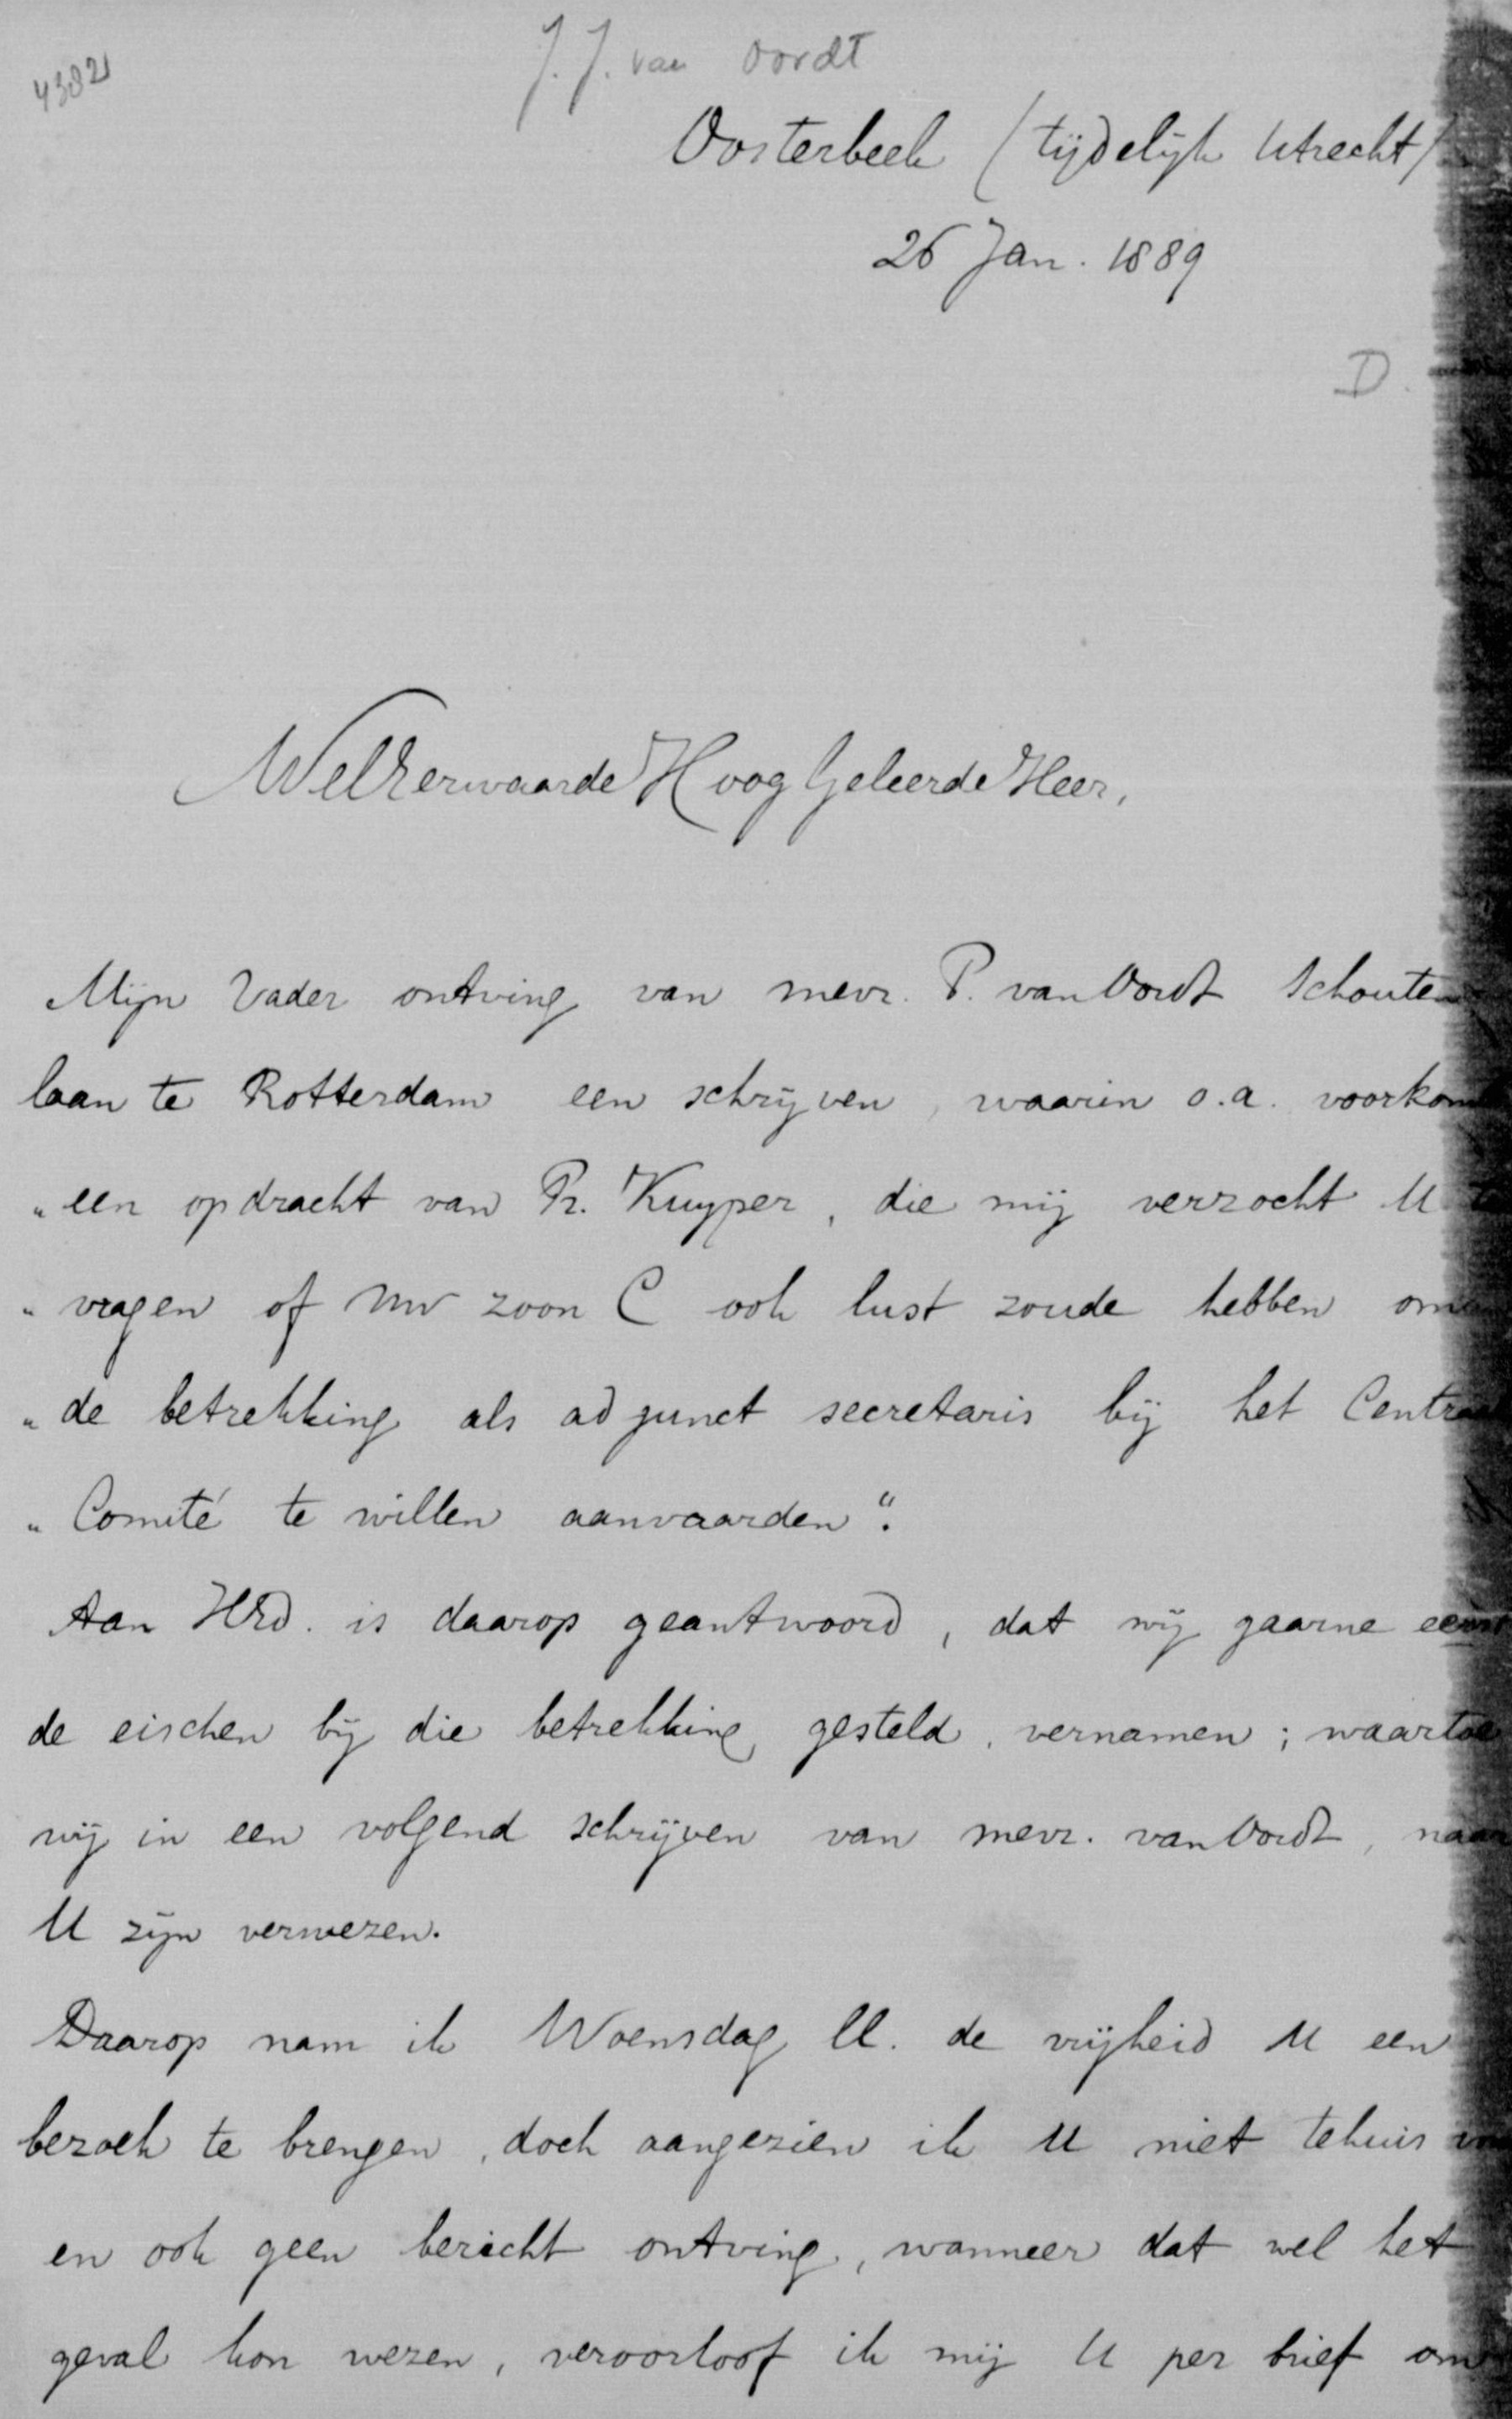 4382
J. J. van Oordt
Oosterbeek (tijdelijk Utrecht)
26 Jan. 1889
D.
WelEerwaarde HoogGeleerde Heer,
Mijn Vader ontving van mevr. P. van Oordt Schouten
laan te Rotterdam een schrijven, waarin o.a. voorkomt
„ een opdracht van Pr. Kuyper, die mij verzocht U te
„ vragen of Uw zoon C ook lust zoude hebben om
„ de betrekking als adjunct secretaris bij het Centraal
„ Comité te willen aanvaarden“.
Aan HEd. is daarop geantwoord, dat wij gaarne eerst
de eischen bij die betrekking gesteld, vernamen; waartoe
wij in een volgend schrijven van mevr. van Oordt, naar
U zijn verwezen.
Daarop nam ik Woensdag ll. de vrijheid U een
bezoek te brengen, doch aangezien ik U niet tehuis
en ook geen bericht ontving, wanneer dat wel het
geval kon wezen, veroorloof ik mij U per brief om